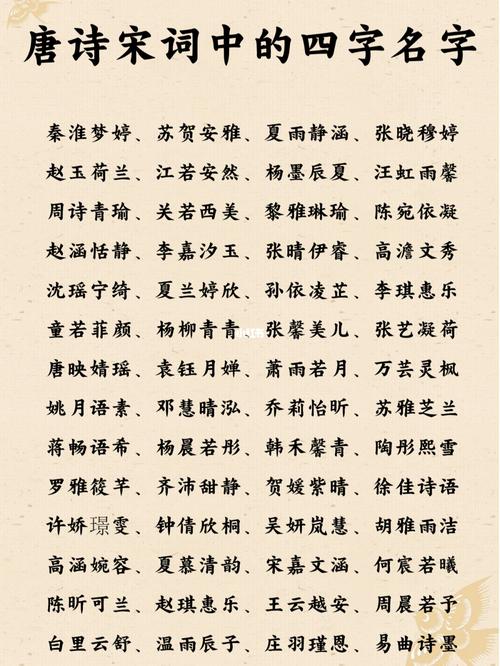 唐诗宋词中的四字名字
秦淮梦婷、苏贺安雅、夏雨静涵、张晓穆婷
赵玉荷兰、江若安然、杨墨辰夏、汪虹雨馨
周诗青瑜、关若西美、黎雅琳瑜、陈宛依凝
赵涵恬静、李嘉汐玉、张晴伊睿、高澹文秀
沈瑶宁绮、夏兰婷欣、孙依凌芷、李琪惠乐
童若菲颜、杨柳青青、张馨美儿、张艺凝荷
唐映婧瑶、袁钰月婵、萧雨若月、万芸灵枫
姚月语素、邓慧晴泓、乔莉怡昕、苏雅芝兰
蒋畅语希、杨晨若彤、韩禾馨青、陶彤熙雪
罗雅筱芊、齐沛甜静、贺媛紫晴、徐佳诗语
许娇璟雯、钟倩欣桐、吴妍岚慧、胡雅雨洁
高涵婉容、夏慕清韵、宋嘉文涵、何宸若曦
陈昕可兰、赵琪惠乐、王云越安、周晨若予
白里云舒、温雨辰子、庄羽瑾恩、易曲诗墨